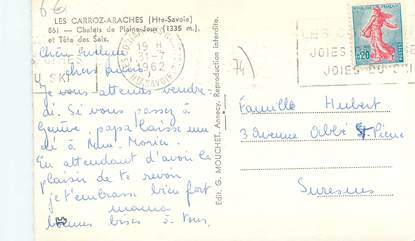 6€
LES CARROZ-ARACHES (Hte-Savoie)
861 - Chalets de Plaine-Joux (1335 m.)
et Tête des Seix.
Chère
chers amis
je vous attends vendre-
di. Si vous passez à
Genève, papa laisse une
clé à Mme
En attendant d'avoir le
plaisir de te revoir
je t'embrasse bien fort
mama
bonnes bises à tous.
Edit. G. MOUCHET, Annecy, Reproduction interdite.
74
19 H
1962
SKI
0,20
LES C
JOIES
JOIES DU SKI
Famille Hubert
3 Avenue Abbé St-Pierre
Suresnes